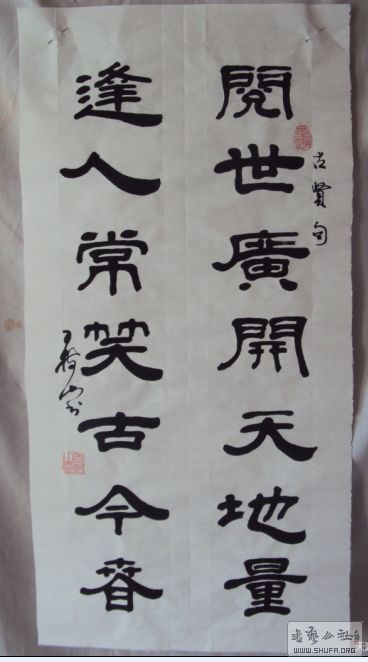 閱世廣開天地量
古賢句
逢人常笑古今春
書藝公社
WWW.SHUFA.ORG